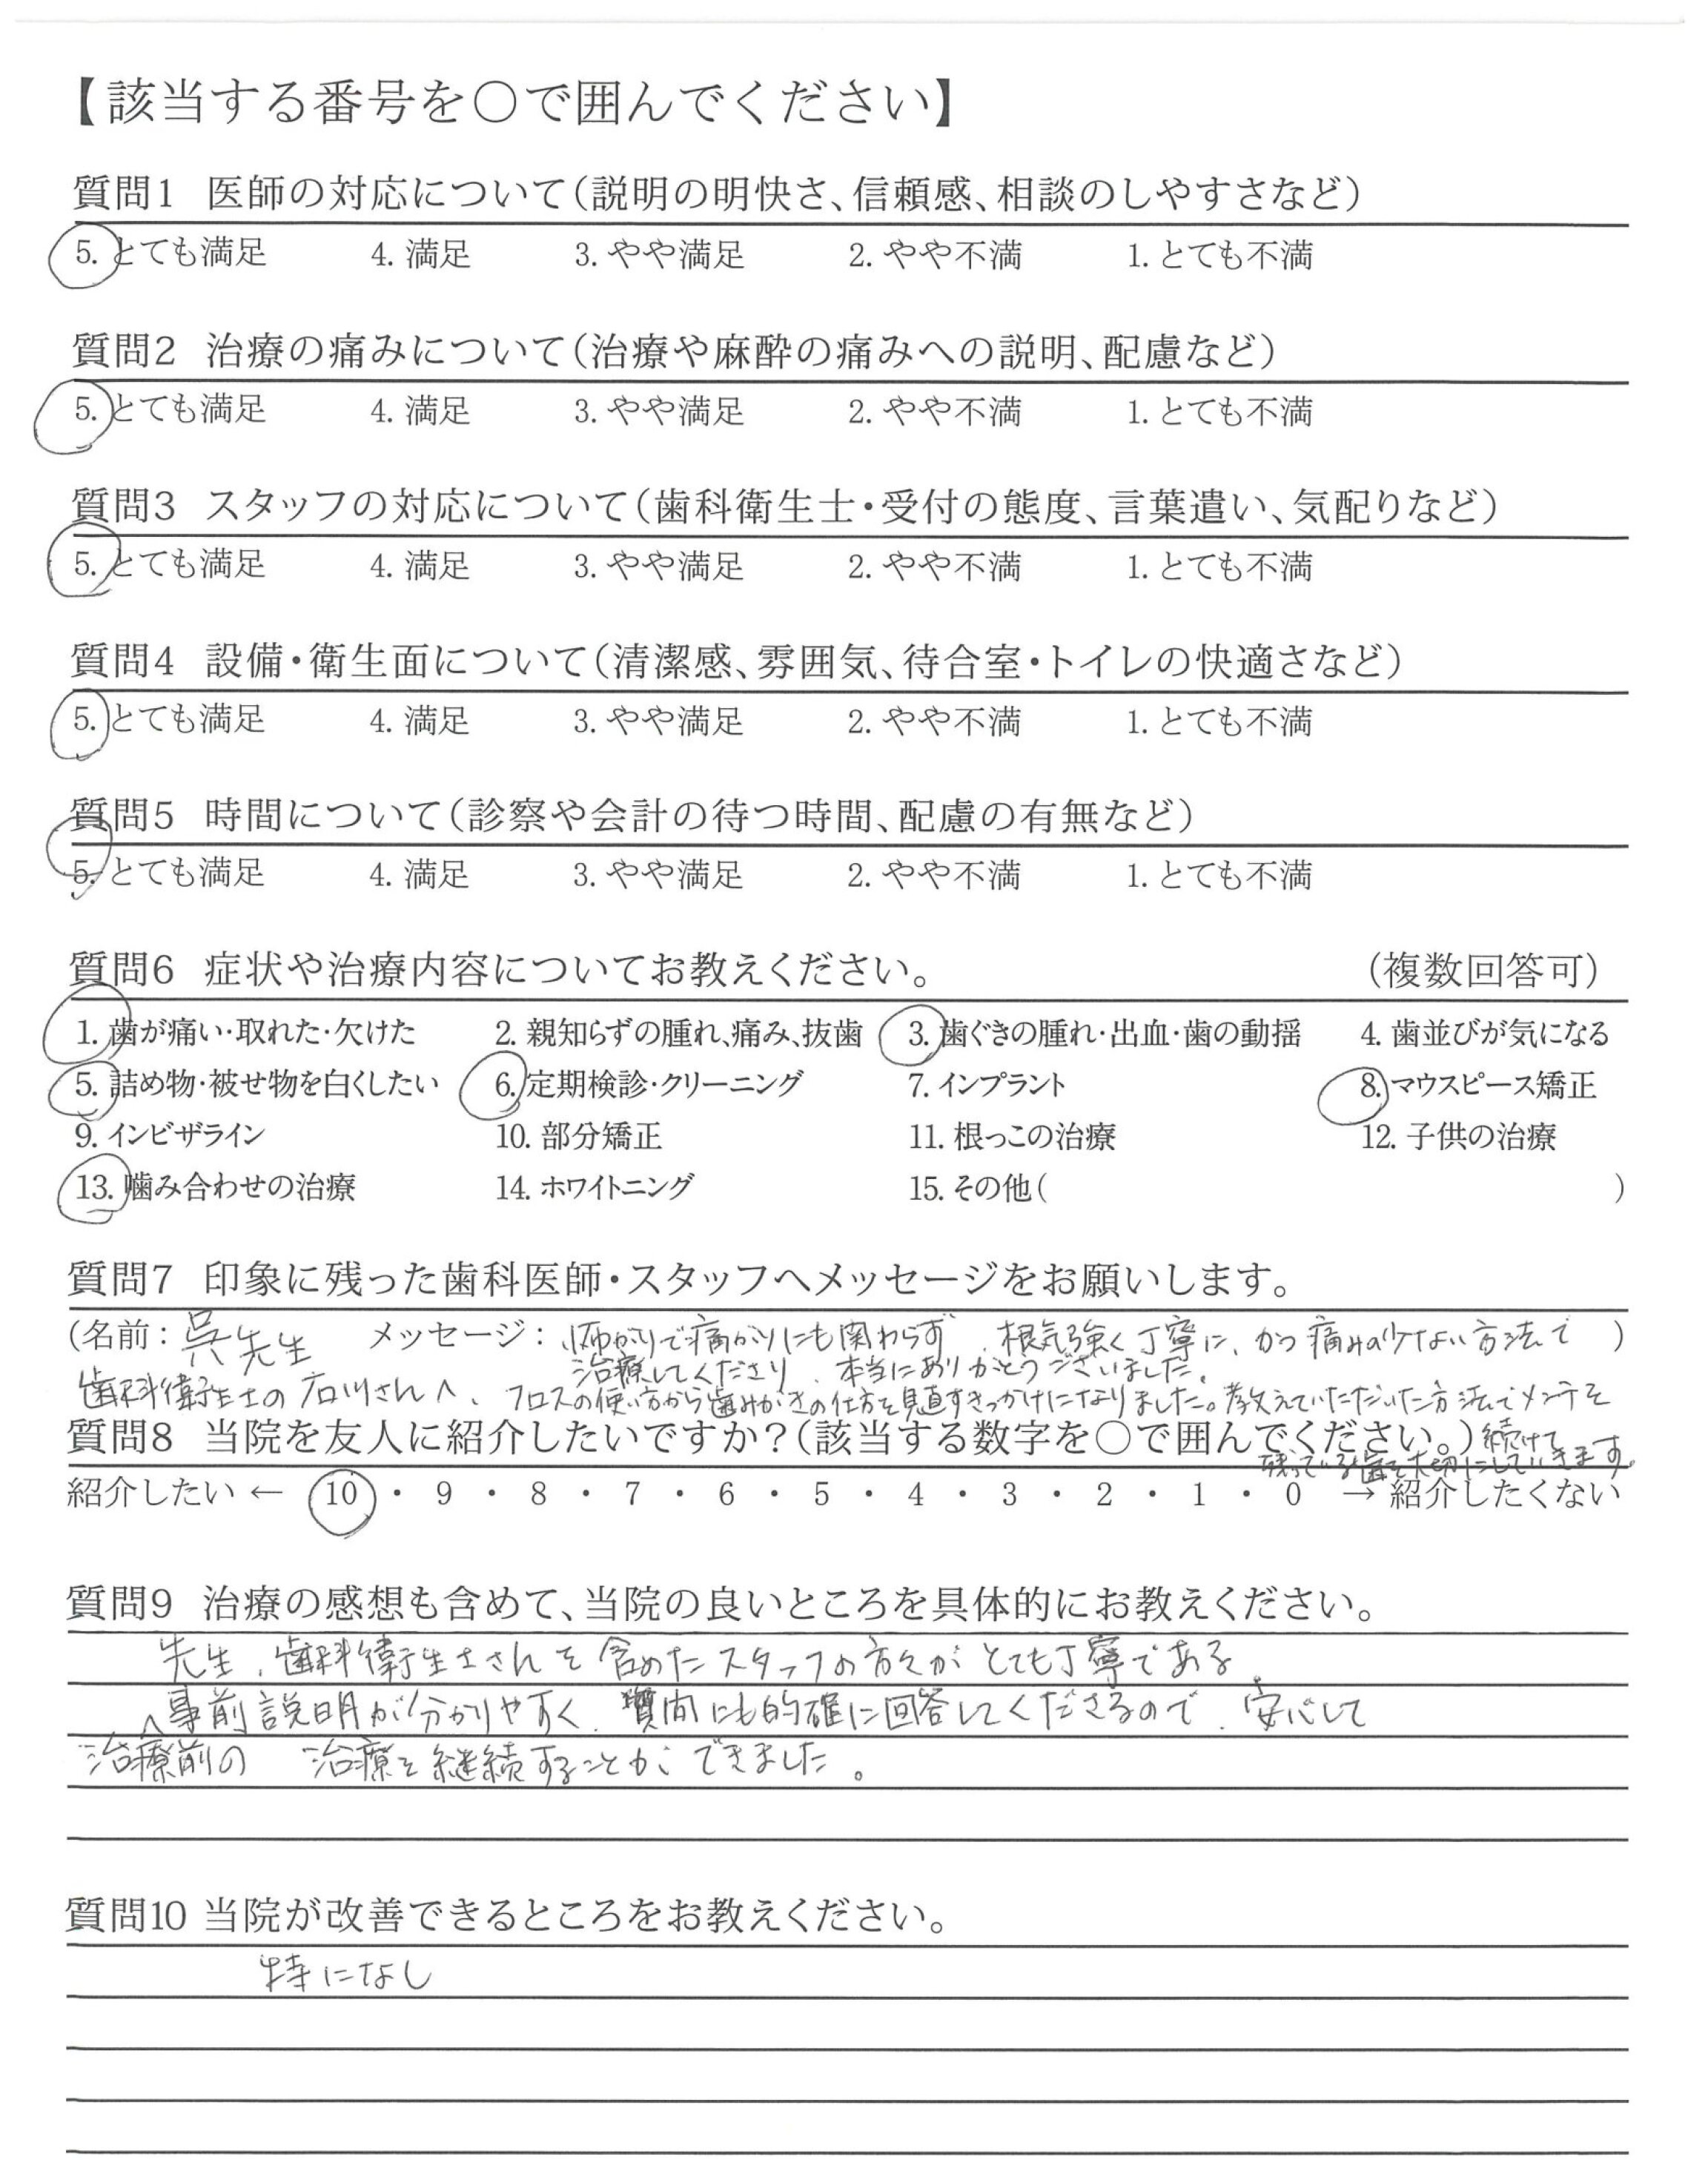 【該当する番号を○で囲んでください】
質問1 医師の対応について(説明の明快さ、信頼感、相談のしやすさなど)
5. とても満足 4. 満足 3. やや満足 2. やや不満 1. とても不満
質問2 治療の痛みについて(治療や麻酔の痛みへの説明、配慮など)
5. とても満足 4. 満足 3. やや満足 2. やや不満 1. とても不満
質問3 スタッフの対応について(歯科衛生士・受付の態度、言葉遣い、気配りなど)
5. とても満足 4. 満足 3. やや満足 2. やや不満 1. とても不満
質問4 設備・衛生面について(清潔感、雰囲気、待合室・トイレの快適さなど)
5. とても満足 4. 満足 3. やや満足 2. やや不満 1. とても不満
質問5 時間について(診察や会計の待つ時間、配慮の有無など)
5. とても満足 4. 満足 3. やや満足 2. やや不満 1. とても不満
質問6 症状や治療内容についてお教えください。 (複数回答可)
1. 歯が痛い・取れた・欠けた 2. 親知らずの腫れ、痛み、抜歯 3. 歯ぐきの腫れ・出血・歯の動揺 4. 歯並びが気になる
5. 詰め物・被せ物を白くしたい 6. 定期検診・クリーニング 7. インプラント 8. マウスピース矯正
9. インビザライン 10. 部分矯正 11. 根っこの治療 12. 子供の治療
13. 噛み合わせの治療 14. ホワイトニング 15. その他( )
質問7 印象に残った歯科医師・スタッフへメッセージをお願いします。
(名前: 呉先生 メッセージ: 怖がりで痛がりにも関わらず、根気強く丁寧に、かつ痛みの少ない方法で )
治療してくださり、本当にありがとうございました。
歯科衛生士の石川さんへ、フロスの使い方から歯みがきの仕方を見直すきっかけになりました。教えていただいた方法でメンテを
質問8 当院を友人に紹介したいですか?(該当する数字を○で囲んでください。) 続けて
残っている歯を大切にしていきます。
紹介したい ← 10 ・ 9 ・ 8 ・ 7 ・ 6 ・ 5 ・ 4 ・ 3 ・ 2 ・ 1 ・ 0 → 紹介したくない
質問9 治療の感想も含めて、当院の良いところを具体的にお教えください。
先生、歯科衛生士さんを含めたスタッフの方々がとても丁寧である
事前説明が分かりやすく、質問にも的確に回答してくださるので、安心して
治療前の 治療を継続することができました。
質問10 当院が改善できるところをお教えください。
特になし